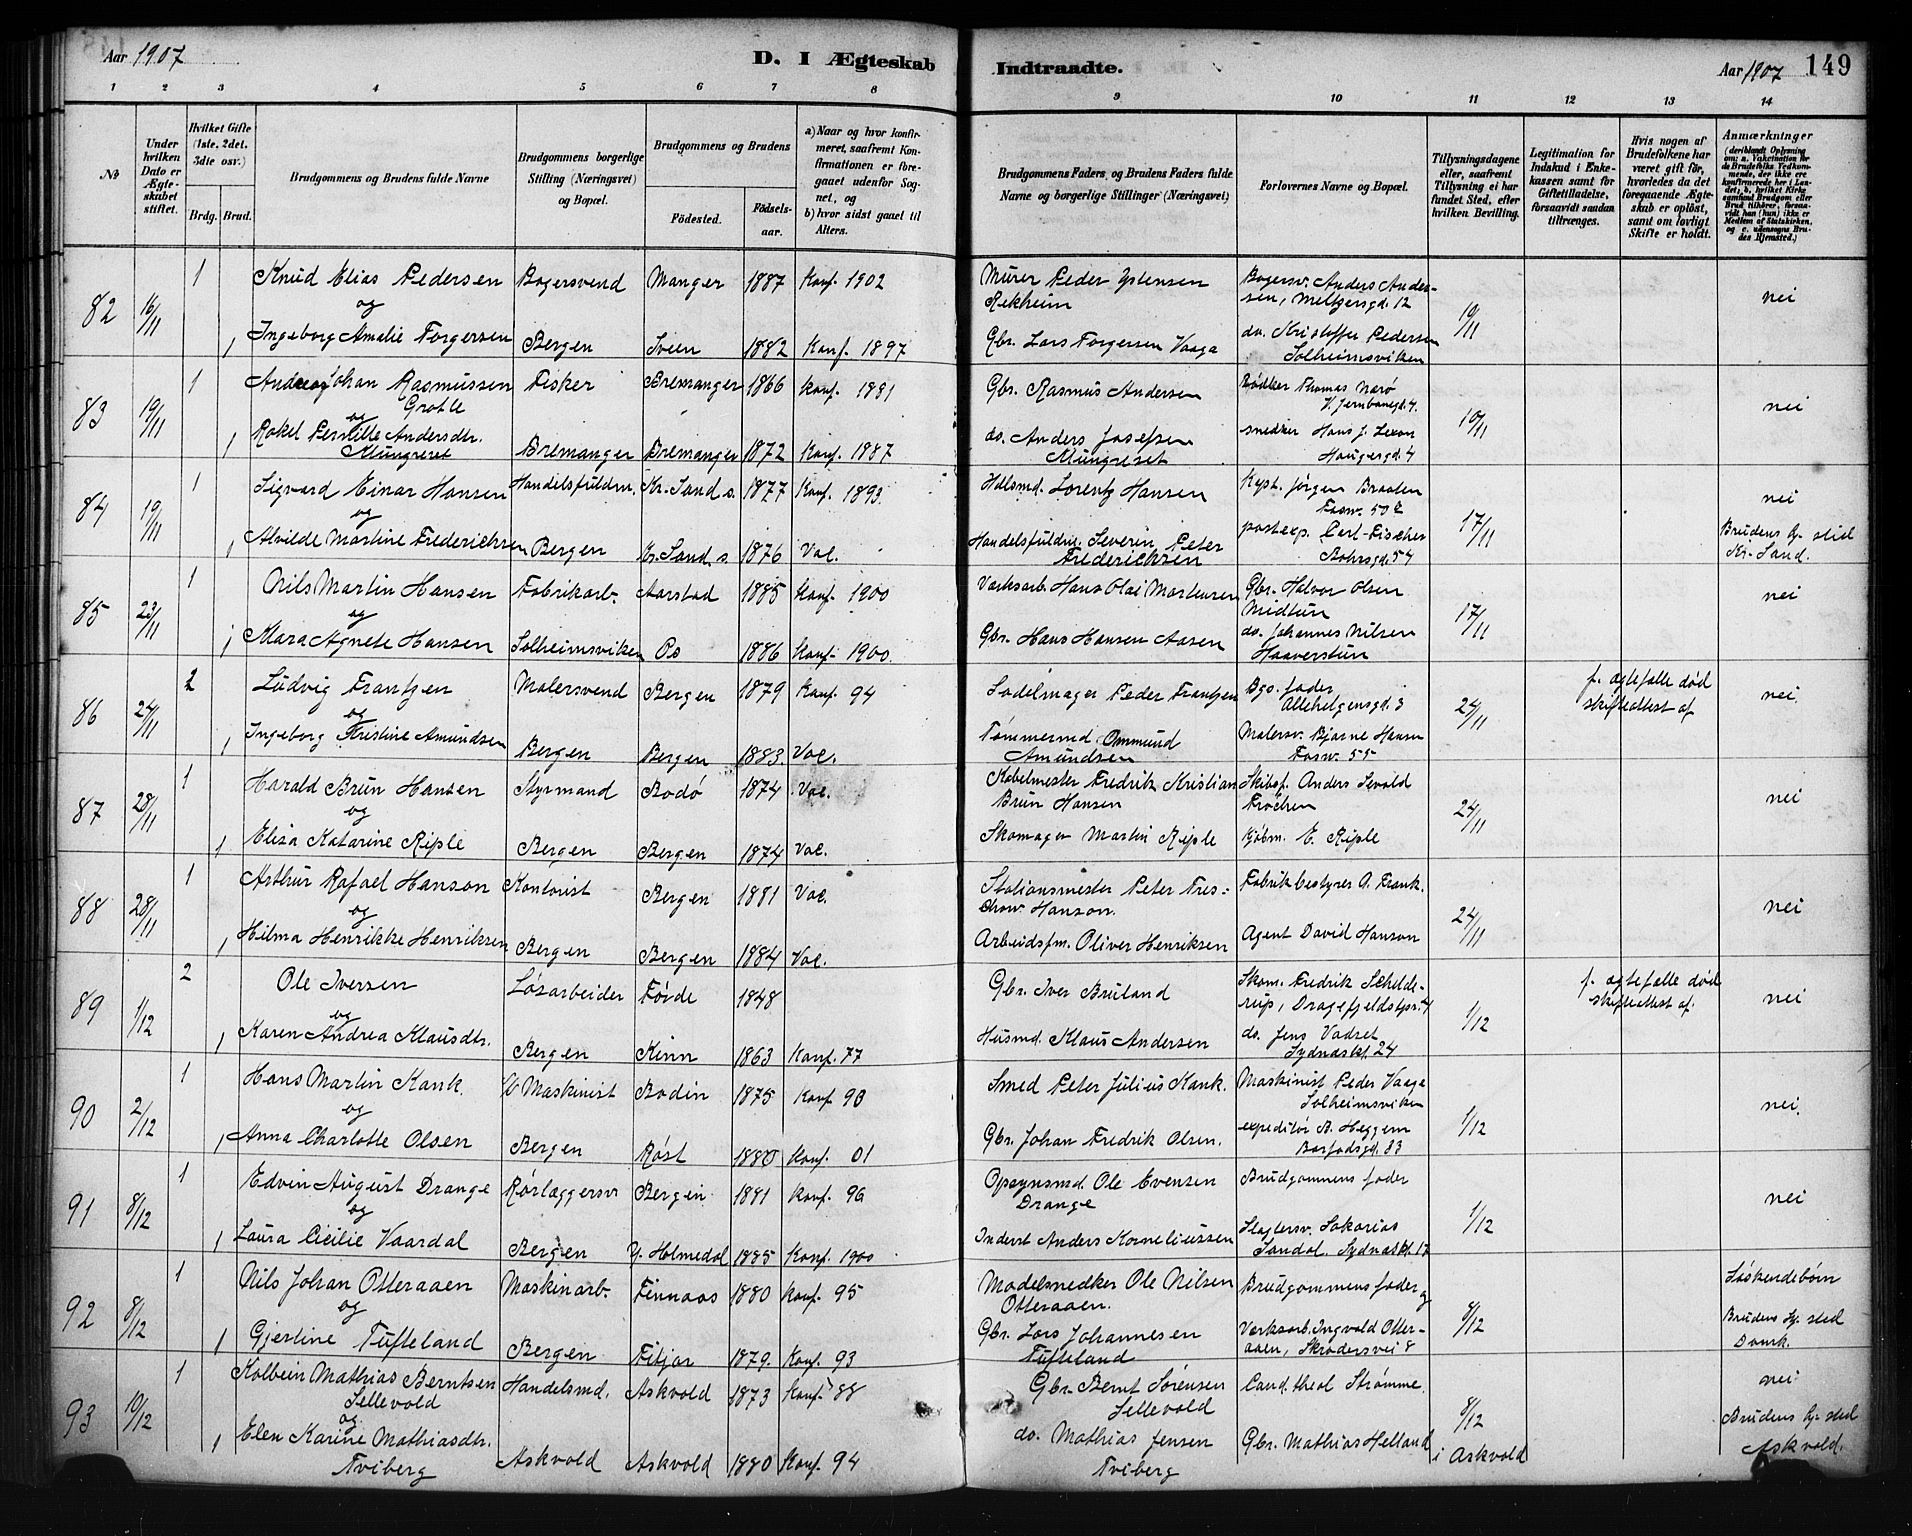 Aar 1907
D. I Ægteskab Indtraadte.
Aar 1907 149
1 2 3 4 5 6 7 8 9 10 11 12 13 14
№
Under hvilken Dato er Ægteskabet stiftet.
Hvilket Gifte (1ste, 2det, 3die osv.)
Brdg. Brud.
Brudgommens og Brudens fulde Navne
Brudgommens borgerlige Stilling (Næringsvei) og Bopæl.
Brudgommens og Brudens
Födested. Födselsaar.
a) Naar og hvor konfirmeret, saafremt Konfirmationen er foregaaet udenfor Sognet, og
b) hvor sidst gaaet til Alters.
Brudgommens Faders, og Brudens Faders fulde Navne og borgerlige Stillinger (Næringsvei)
Forlovernes Navne og Bopæl.
Tillysningsdagene eller, saafremt Tillysning ei har fundet Sted, efter hvilken Bevilling.
Legitimation for Indskud i Enkekassen samt for Giftetilladelse, forsaavidt saadan tiltrænges.
Hvis nogen af Brudefolkene har været gift för, hvorledes da det foregaaende Ægteskab er oplöst, samt om lovligt Skifte er holdt.
Anmærkninger (deriblandt Oplysning om: a. Vakcination for de Brudefolks Vedkommende, der ikke ere konfirmerede her i Landet; b. hvilket Kirkesamfund Brudgom eller Brud tilhörer, forsaavidt han (hun) ikke er Medlem af Statskirken, og c. udensogns Brudes Hjemsted.)
82 16/11 1 Knud Elias Pedersen Bagersvend Manger 1887 Konf. 1902 Murer Peder Ystensen Rekheim Bagersv. Anders Andersen, Meltzersgd. 12 10/11 nei
og
1 Ingeborg Amalie Torgersen Bergen Sveen 1882 Konf. 1897 Gbr. Lars Torgersen Vaaga do. Kristoffer Pedersen Solheimsviken
83 19/11 1 Andreas Johan Rasmussen Grotle Fisker Bremanger 1866 Konf. 1881 Gbr. Rasmus Andersen Bødker Thomas Narø V. Jernbanegd. 4. 10/11 nei
og
1 Rakel Pernille Andersdtr. Mungreset Bremanger Bremanger 1872 Konf. 1887 do. Anders Josefsen Mungreset snedker Hans J. Haugersgd. 4
84 19/11 1 Sigvard Einar Hansen Handelsfuldm. Kr. Sand s. 1877 Konf. 1893 Hdlsmd. Lorentz Hansen Kyst. Jørgen Braaten Fosw. 50 17/11 nei
og
1 Alvilde Martine Frederichsen Bergen Kr. Sand. s. 1876 Vac. Handelsfuldm. Severin Peter Frederichsen postexp. Carl Fischer Bohrsgd. 54 Brudens hj. sted Kr. Sand.
85 23/11 1 Nils Martin Hansen Fabrikarb. Aarstad 1885 Konf. 1900 Værksarb. Hans Olai Mortensen Gbr. Halvor Olsen Midtun 17/11 nei
og
1 Mara Agnete Hansen Solheimsviken Os 1886 Konf. 1900. Gbr. Hans Hansen Aasen do. Johannes Nilsen Haaverstun
86 24/11 2 Ludvig Frantzen Malersvend Bergen 1879 Konf. 94 Sadelmager Peder Frantzen Bgs. fader Allehelgensgd. 3 24/11 f. ægtefælle død skifteattest af nei.
og
1 Ingeborg Kristine Amundsen Bergen Bergen 1883. Vac. Tømmermd. Ommund Amundsen Malersv. Bjarne Hansen Fosw. 55
87 28/11 1 Harald Brun Hansen Styrmand Bodø 1874 Vac. Købelmester Fredrik Kristian Brun Hansen Skibsf. Anders Sevald Frochen 24/11 nei
og
1 Eliza Katarine Riple Bergen Bergen 1874 Vac. Skomager Martin Riple Kjøbm. E. Riple
88 28/11 1 Arthur Rafael Hanson Kontorist Bergen 1881 Vac. Stationsmester Peter Treschow Hanson. Fabrikbestyrer A. Frank. 24/11 nei
og
1 Hilma Henrikke Henriksen Bergen Bergen 1884 Vac. Arbeidsfm. Oliver Henriksen Agent David Hanson
89 1/12 2 Ole Iversen Løsarbeider Førde 1848 Gbr. Iver Bruland Skom. Fredrik Schelderup, Dragefjeldstpr. 4 1/12 f. ægtefælle død skifteattest af. nei
og
1 Karen Andrea Klausdtr. Bergen Kinn 1863 Konf. 77 Husmd. Klaus Andersen do. Jens Vadset Sydneskl. 24
90 2/12 1 Hans Martin Kank. Maskinist Bodin 1875 Konf 90 Smed Peter Julius Kank. Maskinist Peder Vaaga Solheimsviken 1/12 nei.
og
1 Anna Charlotte Olsen Bergen Røst 1880 Konf. 01 Gbr. Johan Fredrik Olsen. expeditør B. Heggem 83
91 8/12 1 Edvin August Drange Rørlæggersv Bergen 1881 Konf. 96 Opsynsmd. Ole Evensen Drange Brudgommens fader 1/12 nei
og
1 Laura Cicilie Vaardal Bergen Y. Holmedal 1885 Konf. 1900 Inderst Anders Korneliussen Slagtersv. Sakarias Sandal. Sydneskl. 17
92 8/12 1 Nils Johan Otteraaen Maskinarb. Finnaas 1880 Konf. 95 Modelsnedker Ole Nilsen Otteraaen. Brudgommens fader og 8/12 Søskendebørn
og
1 Gjertine Tufteland Bergen Fitjar 1879. Konf. 93 Gbr. Lars Johannesen Tufteland Værksarb. Ingvald Otteraaen, Skrædersvei 8 Brudens hj. sted
93 10/12 1 Kolbein Mathias Berntsen Sellevold Handelsmd. Askvold 1873 Konf 88 Gbr. Bernt Sørensen Sellevold Cand. theol Strømme. 8/12 i Askvold nei
og
1 Elen Karine Mathiasdtr. Tviberg Askvold Askvold 1880 Konf. 94 do. Mathias Jensen Tviberg Gbr. Mathias Helland Brudens hj. sted Askvold.